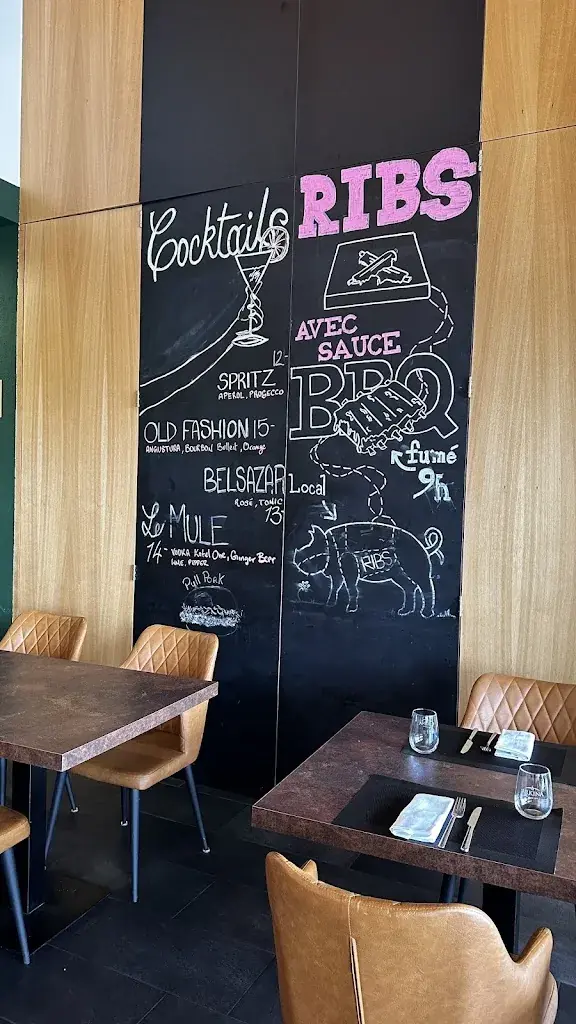 Cocktails
12-
SPRITZ
APEROL, PROSECCO
OLD FASHION 15-
ANGUSTURA, BOURBON Bulleit, Orange
BELSAZAR
ROSÉ, TONIC
13-
Le MULE
14- VODKA Ketel One, Ginger Beer
LIME, PEPPER
Pull Pork
RIBS
AVEC
SAUCE
BBQ
fumé
9h
Local
RIBS